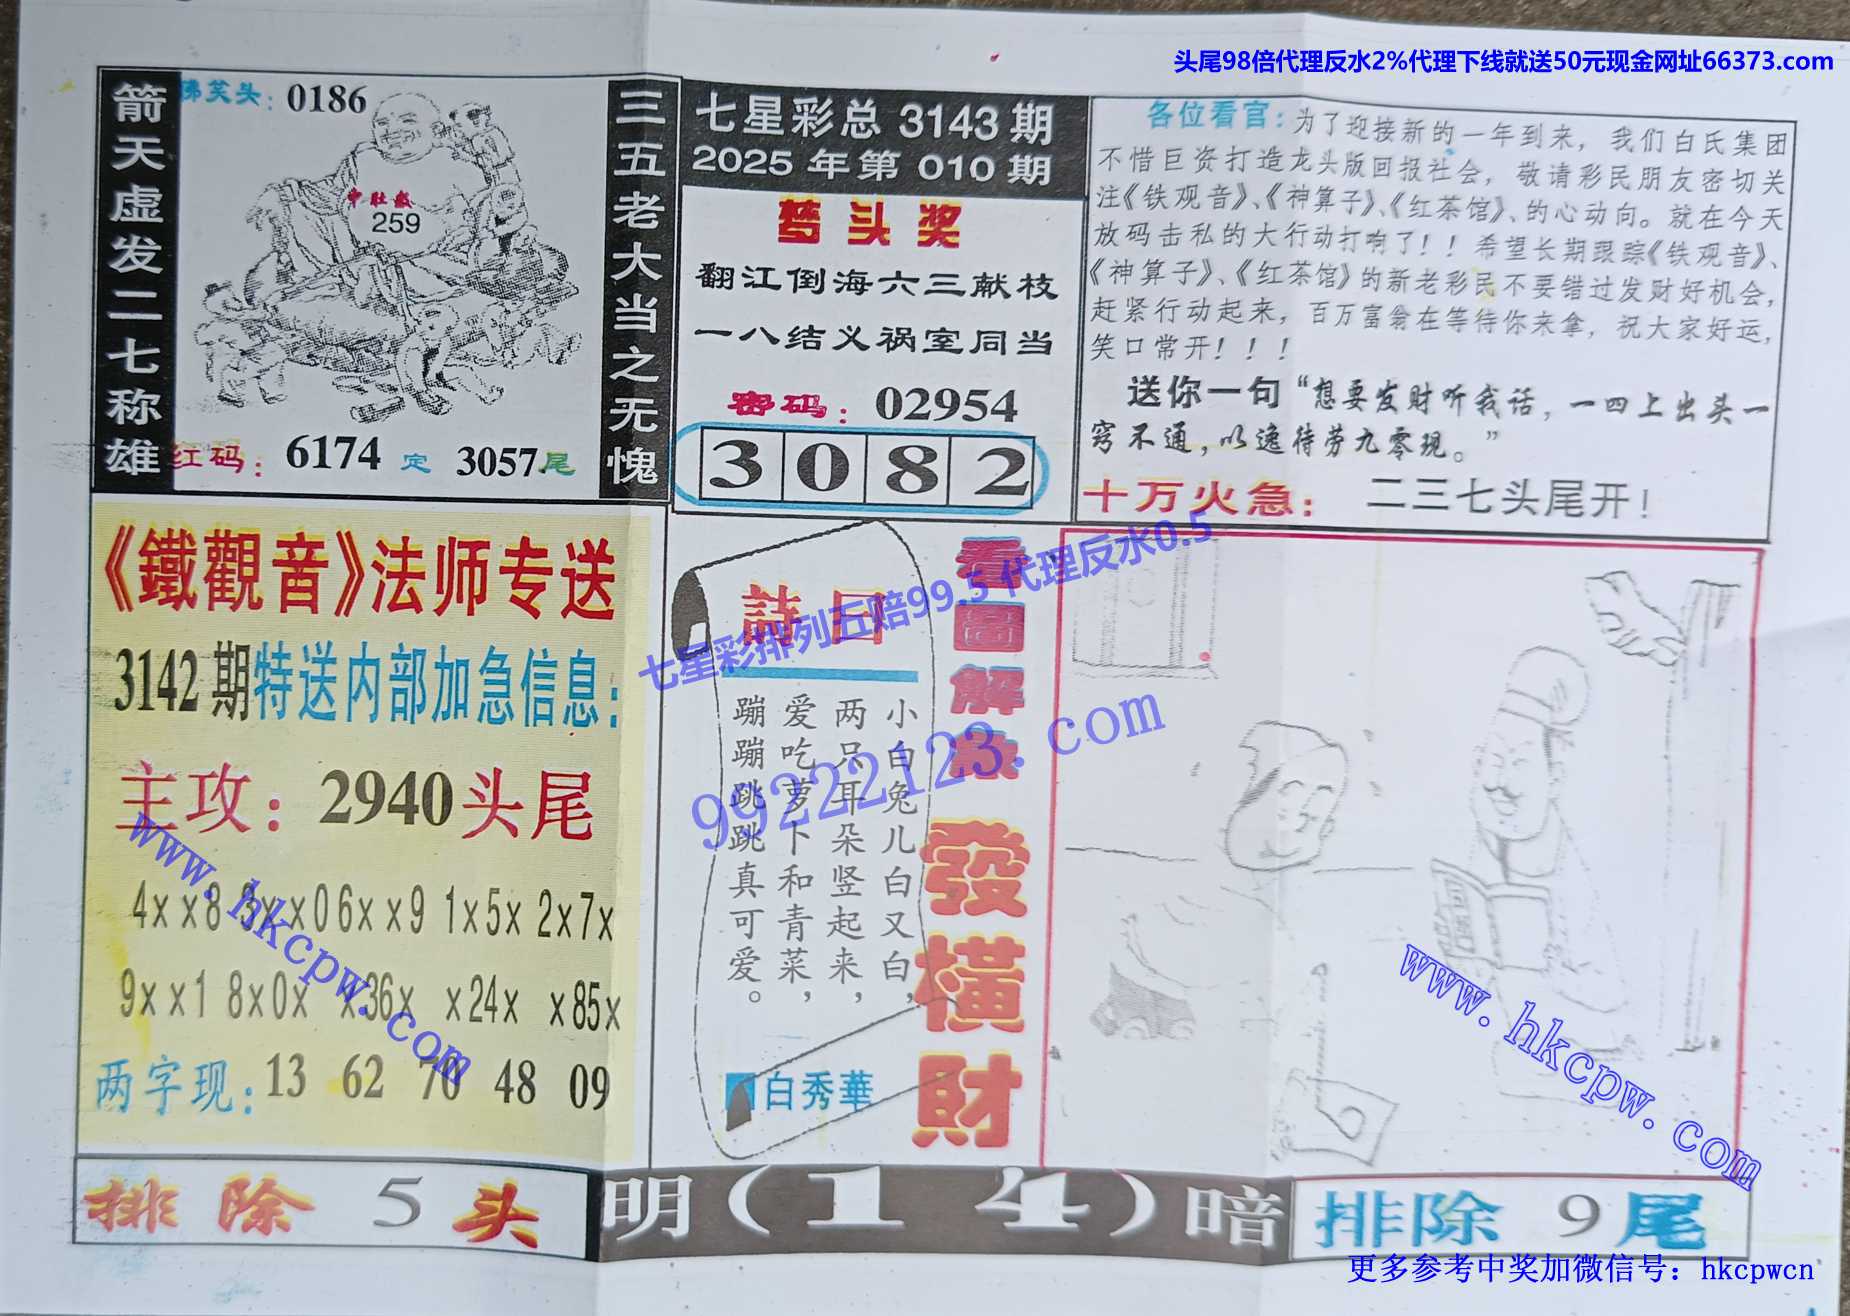 头尾98倍代理反水2%代理下线就送50元现金网址66373.com
箭天虚发二七称雄
佛笑头：0186
中肚数
259
红码：6174 定 3057尾
三五老大当之无愧
七星彩总 3143 期
2025 年第 010 期
梦头奖
翻江倒海六三献枝
一八结义祸室同当
密码：02954
3 0 8 2
各位看官：为了迎接新的一年到来，我们白氏集团
不惜巨资打造龙头版回报社会，敬请彩民朋友密切关
注《铁观音》、《神算子》、《红茶馆》、的心动向。就在今天
放码击私的大行动打响了！！希望长期跟踪《铁观音》、
《神算子》、《红茶馆》的新老彩民不要错过发财好机会，
赶紧行动起来，百万富翁在等待你来拿，祝大家好运，
笑口常开！！！
送你一句“想要发财听我话，一四上出头一
窍不通，以逸待劳九零现。”
十万火急：二三七头尾开！
《鐵觀音》法师专送
3142期特送内部加急信息：
主攻：2940头尾
4xx8 3xx0 6xx9 1x5x 2x7x
9xx1 8x0x x36x x24x x85x
两字现：13 62 70 48 09
詩曰
小白兔儿白又白，
两只耳朵竖起来，
爱吃萝卜和青菜，
蹦蹦跳跳真可爱。
白秀華
看圖解
發橫財
七星彩排列五赔99.5 代理反水0.5
99222123.com
www.hkcpw.com
www.hkcpw.com
排除 5 头
明（1 4）暗
排除 9 尾
更多参考中奖加微信号：hkcpwcn